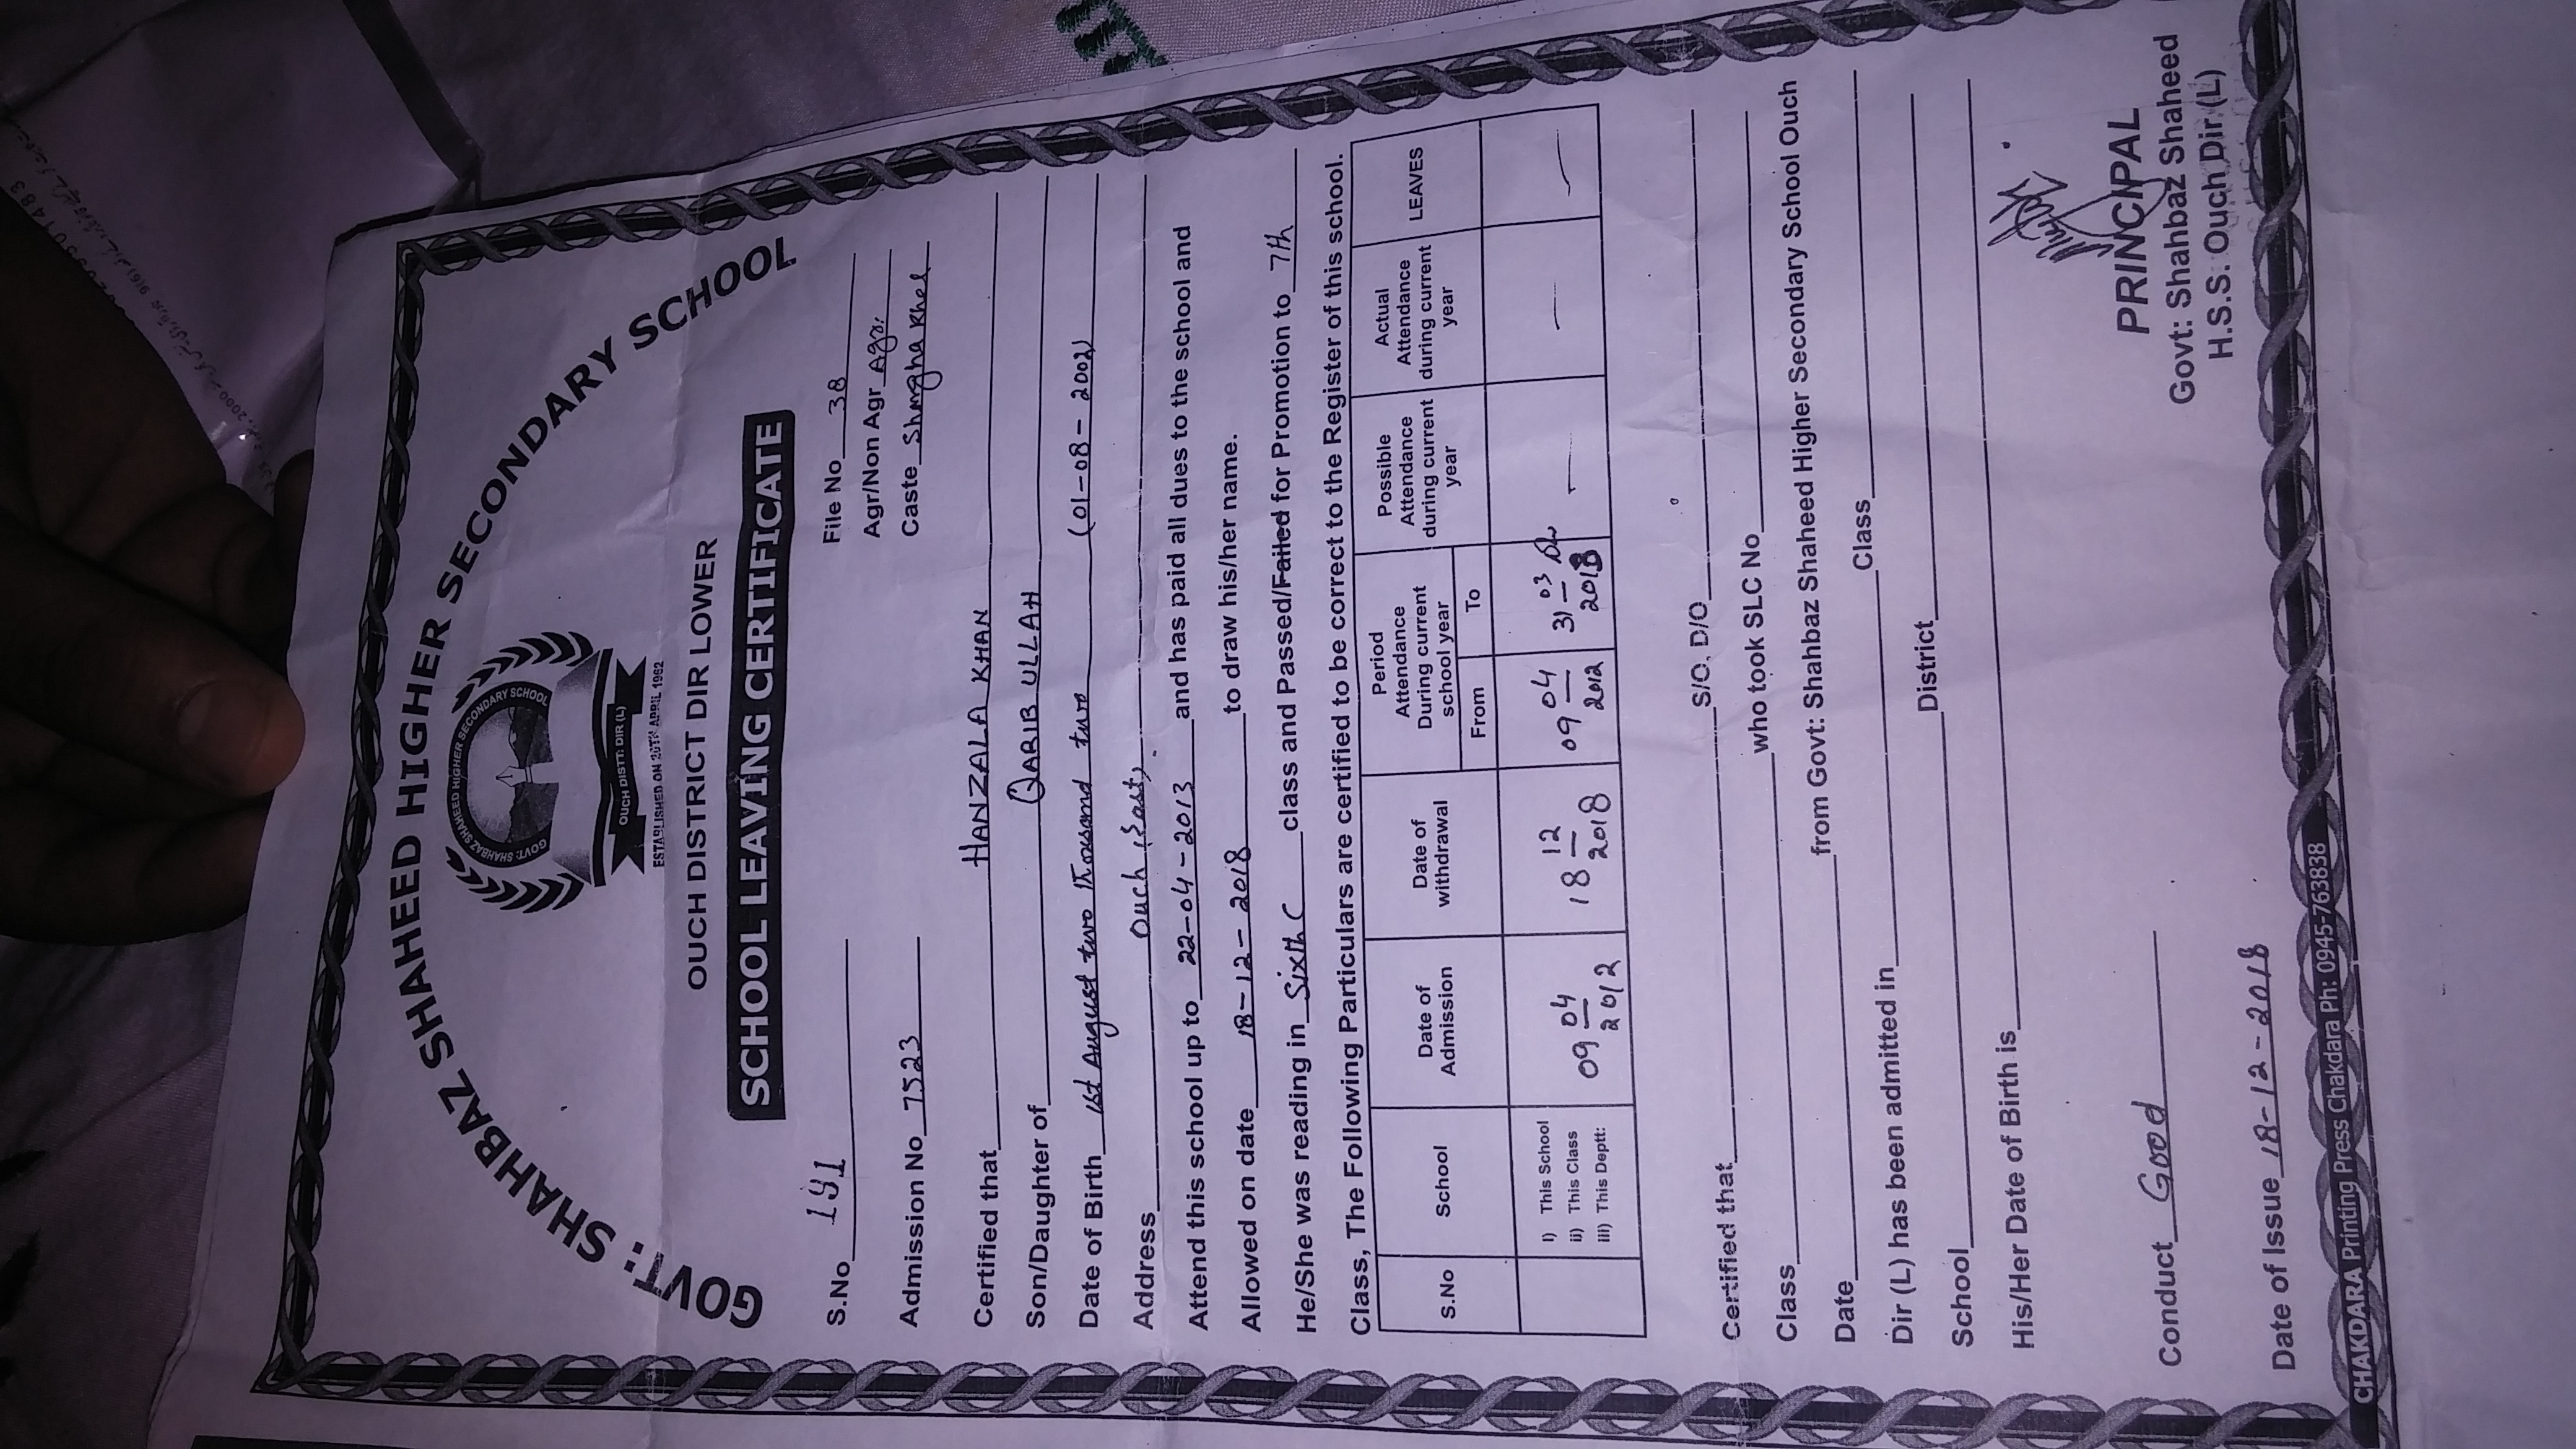 GOVT: SHAHBAZ SHAHEED HIGHER SECONDARY SCHOOL
GOVT: SHAHBAZ SHAHEED HIGHER SECONDARY SCHOOL
OUCH DISTT: DIR (L)
ESTABLISHED ON 20TH APRIL 1962
OUCH DISTRICT DIR LOWER
SCHOOL LEAVING CERTIFICATE
S.No 191 File No 38
Agr/Non Agr Agr:
Admission No 7523 Caste Shangha Khel
Certified that HANZALA KHAN
Son/Daughter of QARIB ULLAH
Date of Birth 1st August two thousand two (01-08-2002)
Address Ouch (East).
Attend this school up to 22-04-2013 and has paid all dues to the school and
Allowed on date 18-12-2018 to draw his/her name.
He/She was reading in Sixth C class and Passed/Failed for Promotion to 7th
Class, The Following Particulars are certified to be correct to the Register of this school.
S.No School Date of Admission Date of withdrawal Period Attendance During current school year From To Possible Attendance during current year Actual Attendance during current year LEAVES
i) This School
ii) This Class
iii) This Deptt:
09 04 2012 18 12 2018 09 04 2012 31 03 — — —
Certified that S/O, D/O
Class who took SLC No
Date from Govt: Shahbaz Shaheed Higher Secondary School Ouch
Dir (L) has been admitted in Class
School District
His/Her Date of Birth is
Conduct Good
PRINCIPAL
Govt: Shahbaz Shaheed
H.S.S. Ouch Dir (L)
Date of Issue 18-12-2018
CHAKDARA Printing Press Chakdara Ph: 0945-763838